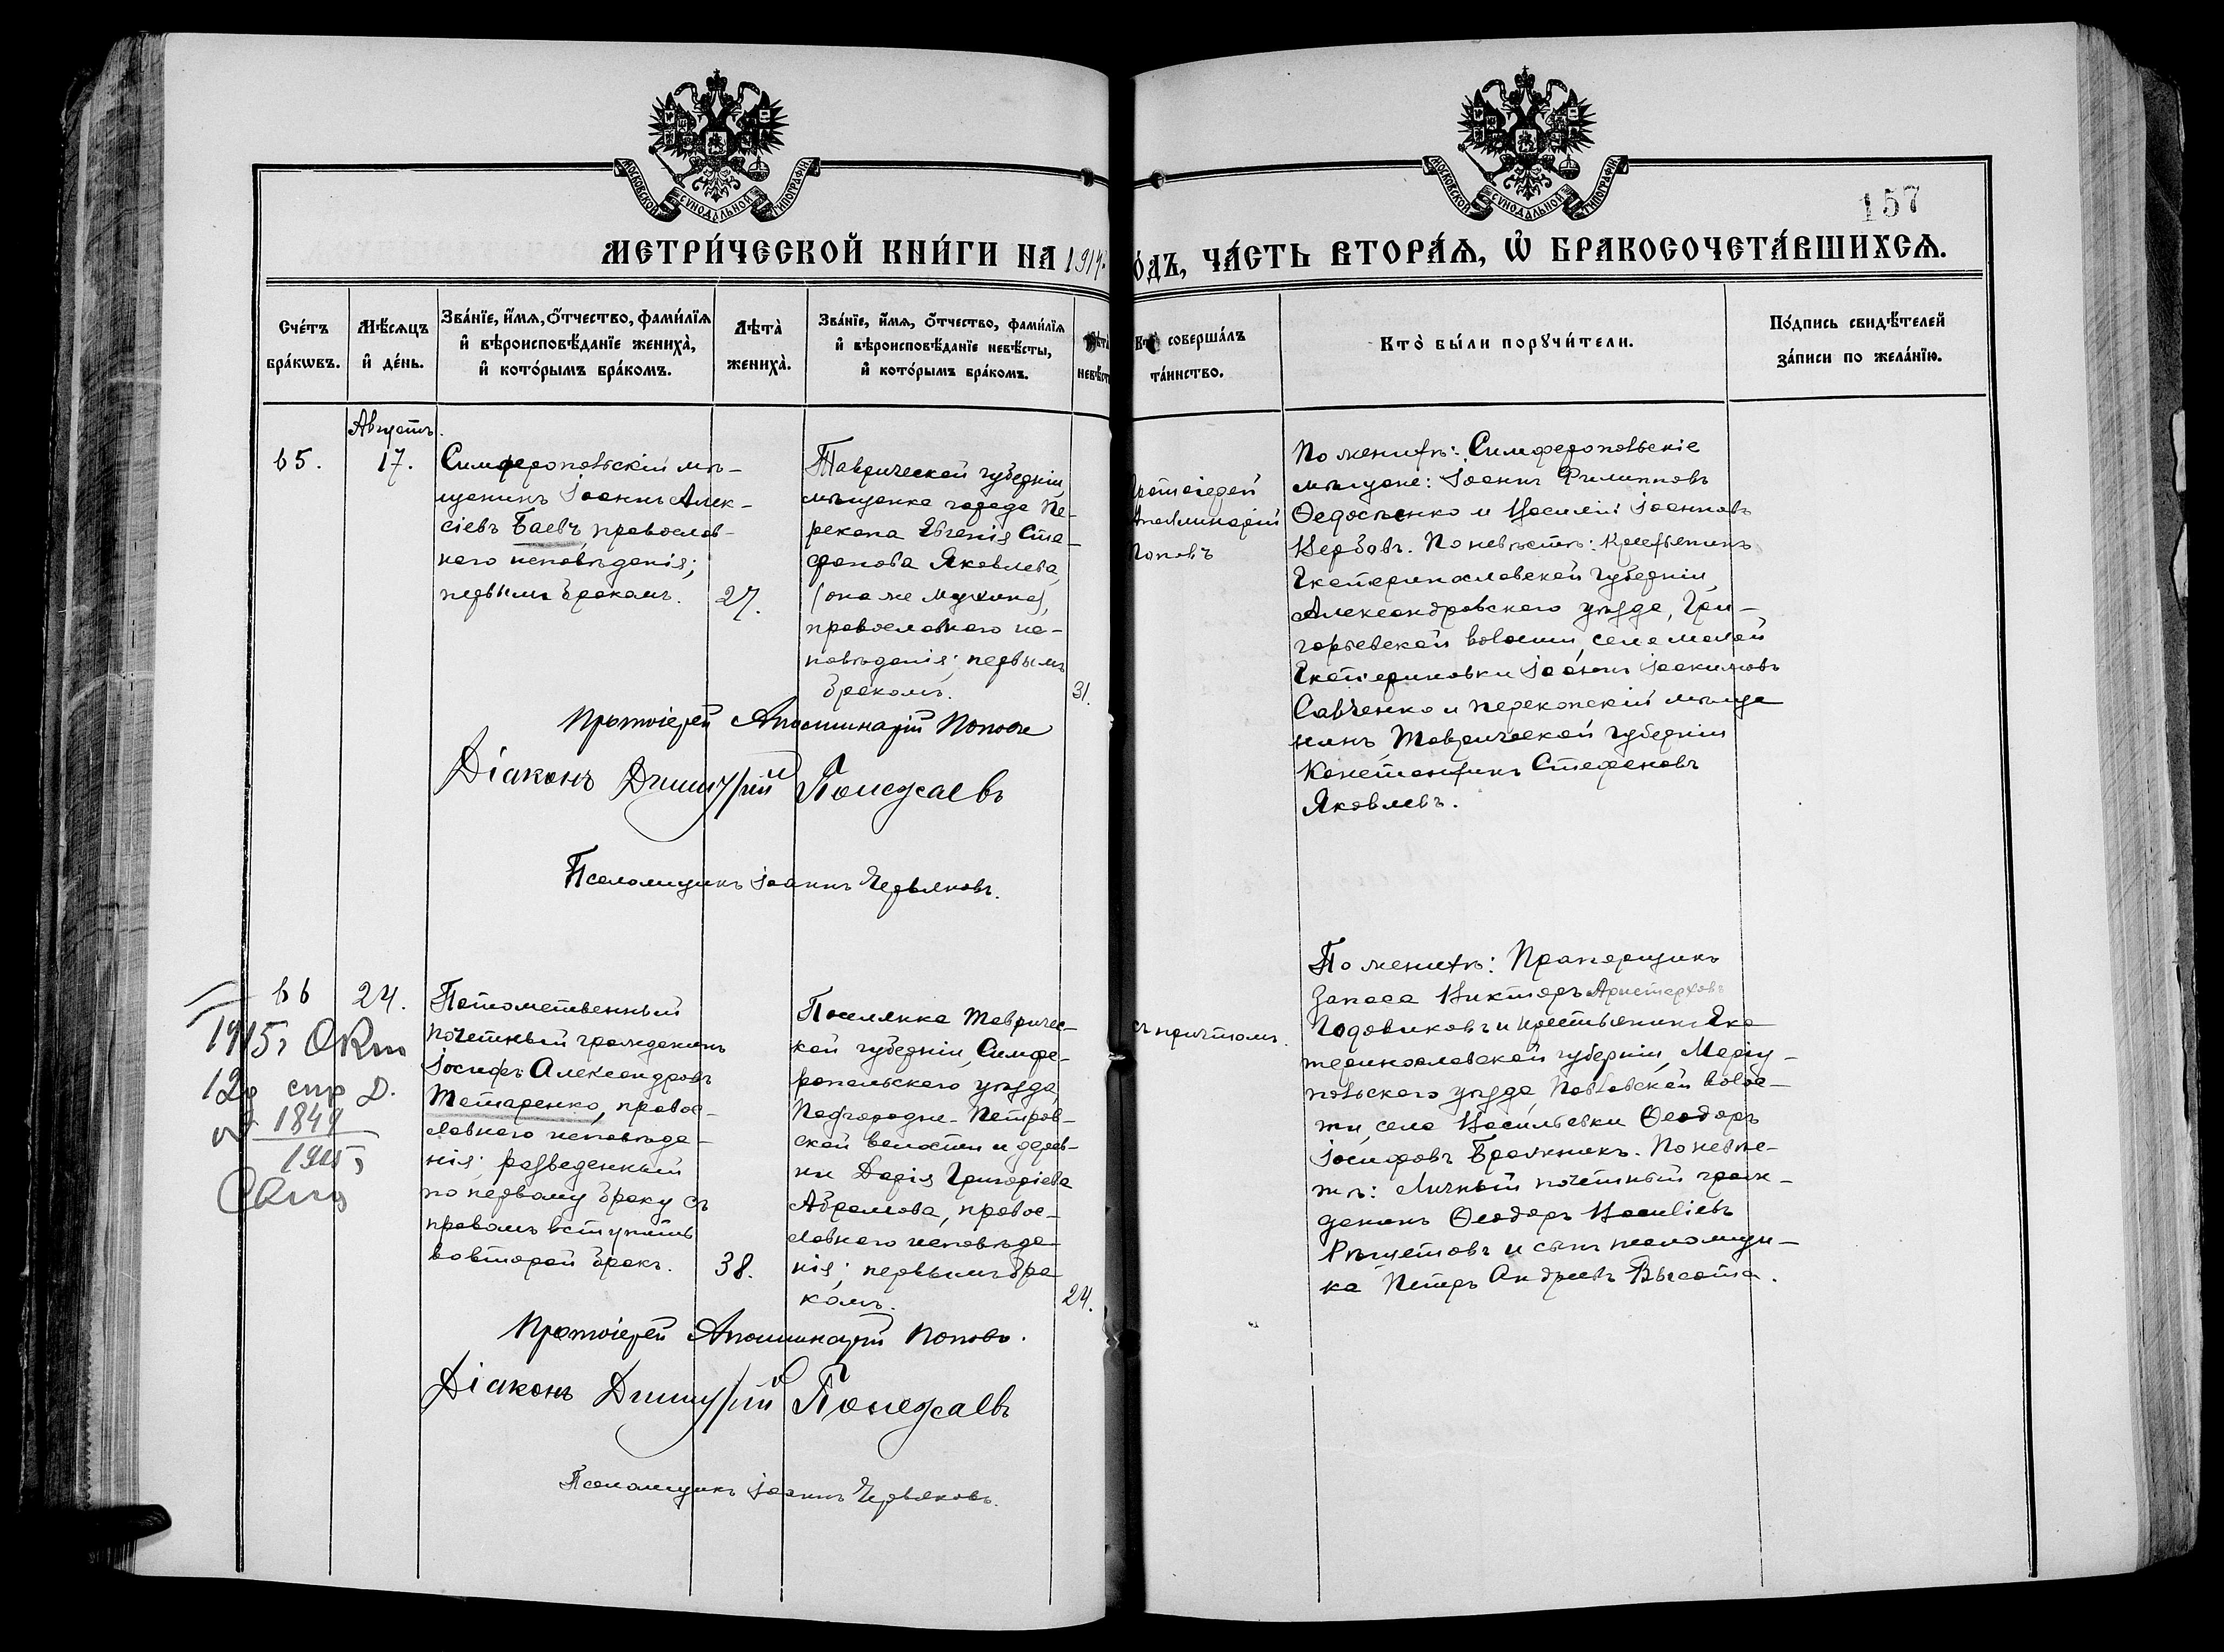 МОСКОВСКОЙ СѴНОДАЛЬНОЙ ТИПОГРАФІИ
МОСКОВСКОЙ СѴНОДАЛЬНОЙ ТИПОГРАФІИ
157
МЕТРИ́ЧЕСКОЙ КНИ́ГИ НА 1914
О́ДЪ, ЧА́СТЬ ВТОРА́Ѧ, Ѽ БРАКОСОЧЕТА́ВШИХСѦ.
Сче́тъ
бра́кѡвъ.
Мѣ́сѧцъ
и҆ де́нь.
Зва́нїе, и҆́мѧ, ѻ҆́тчество, фами́лїѧ
и҆ вѣроисповѣ́данїе жениха̀,
и҆ кото́рымъ бра́комъ.
Лѣта̀
жениха̀.
Зва́нїе, и҆́мѧ, ѻ҆́тчество, фами́лїѧ
и҆ вѣроисповѣ́данїе невѣ́сты,
и҆ кото́рымъ бра́комъ.
Лѣта̀
невѣ́сты
Кто̀ соверша́лъ
та́инство.
Кто̀ бы́ли порꙋчи́тели.
По́дпись свидѣ́телей
за́писи по жела́нїю.
Августъ.
65.
17.
Симферопольскій мѣ-
щанинъ Іоаннъ Алек-
сіевъ Баевъ, православ-
наго исповѣданія;
первымъ бракомъ.
27.
Таврической губерніи,
мѣщанка города Пе-
рекопа Евгенія Сте-
фанова Яковлева,
(она же Мухина),
православнаго ис-
повѣданія; первымъ
бракомъ.
31.
Протоіерей
Аполлинарій
Поповъ
По женихѣ: Симферопольскіе
мѣщане: Іоаннъ Филипповъ
Ѳедосѣенко и Василій Іоанновъ
Вербовъ. По невѣстѣ: крестьянинъ
Екатеринославской губерніи,
Александровскаго уѣзда, Гри-
горьевской волости, села Малой
Екатериновки Іоаннъ Іоакимовъ
Савченко и перекопскій мѣща
нинъ Таврической губерніи
Константинъ Стефановъ
Яковлевъ.
Протоіерей Аполлинарій Поповъ
Діаконъ Димитрій
Псаломщикъ Іоаннъ Червяковъ.
66
24.
1915г Окт
12д спр Д.
1848
1915
Потомственный
почетный гражданинъ
Іосифъ Александровъ
Татаренко, правос-
лавнаго исповѣда-
нія; разведенный
по первому браку съ
правомъ вступить
во второй бракъ.
38.
Поселянка Тавричес-
кой губерніи, Симфе-
ропольскаго уѣзда,
Подгородне-Петров-
ской волости и дерев-
ни Дарія Григоріева
Абрамова, правос-
лавнаго исповѣда-
нія; первымъ бра
комъ.
24.
съ причтомъ.
По женихѣ: Прапорщикъ
запаса Викторъ Аристарховъ
Годовиковъ и крестьянинъ Ека
теринославской губерніи, Маріу-
польскаго уѣзда, Павловской волос-
ти, села Васильевки Ѳеодоръ
Іосифовъ Бражникъ. По невѣс-
тѣ: Личный почетный граж-
данинъ Ѳеодоръ Василіевъ
Рѣшетовъ и сынъ псаломщи-
ка Петръ Андреевъ Высота.
Протоіерей Аполлинарій Поповъ.
Діаконъ Димитрій
Псаломщикъ Іоаннъ Червяковъ.